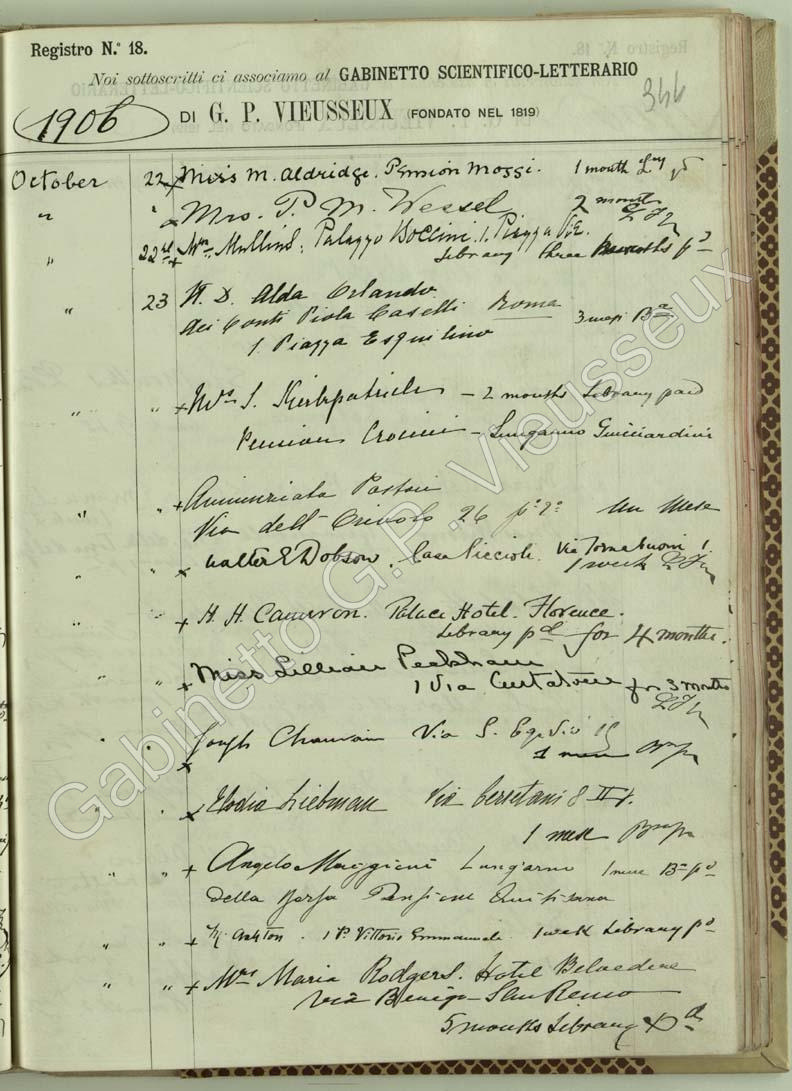 Registro N.° 18.
Noi sottoscritti ci associamo al GABINETTO SCIENTIFICO-LETTERARIO
DI G. P. VIEUSSEUX (FONDATO NEL 1819)
1906
October 22 Miss M. Aldridge. Pension Mozzi. 1 month
" " Mrs. P. M. Wessel 2 month
" 22nd Mrs. Mullins, Palazzo 1. Piazza V.E.
Library three months pd
" 23 N. D. Alda Orlando
dei Conti Piola Caselli Roma 3 mesi Ba
1. Piazza Esquilino
" " Mrs S. Kirkpatrick - 2 months Library paid
Pension Crocini - Lungarno Guicciardini
" " Annunziata Pastori
Via dell' Orivolo 26 po 2o Un Mese
" Walter E Dobson. Casa Piccioli. Via Tornabuoni 1.
1 week
" " H. H. Cameron. Palace Hotel. Florence.
Library pd for 4 months.
" " Miss Lillian Peckham
1 Via Curtatone for 3 months
" Joseph Via S. Egidio
1 mese
" Elodia Liebman Via Cerretani 8 II p.
1 mese
" " Angelo Maggioni Lungarno 1 mese Ba pd
della Borsa Pensione Quisisana
" " Ashton. 1 P. Vittorio Emmanuele. 1 week Library pd
" " Mrs Maria Rodgers. Hotel Belvedere
via Berigo San Remo
5 months Library Pd
Gabinetto G.P. Vieusseux